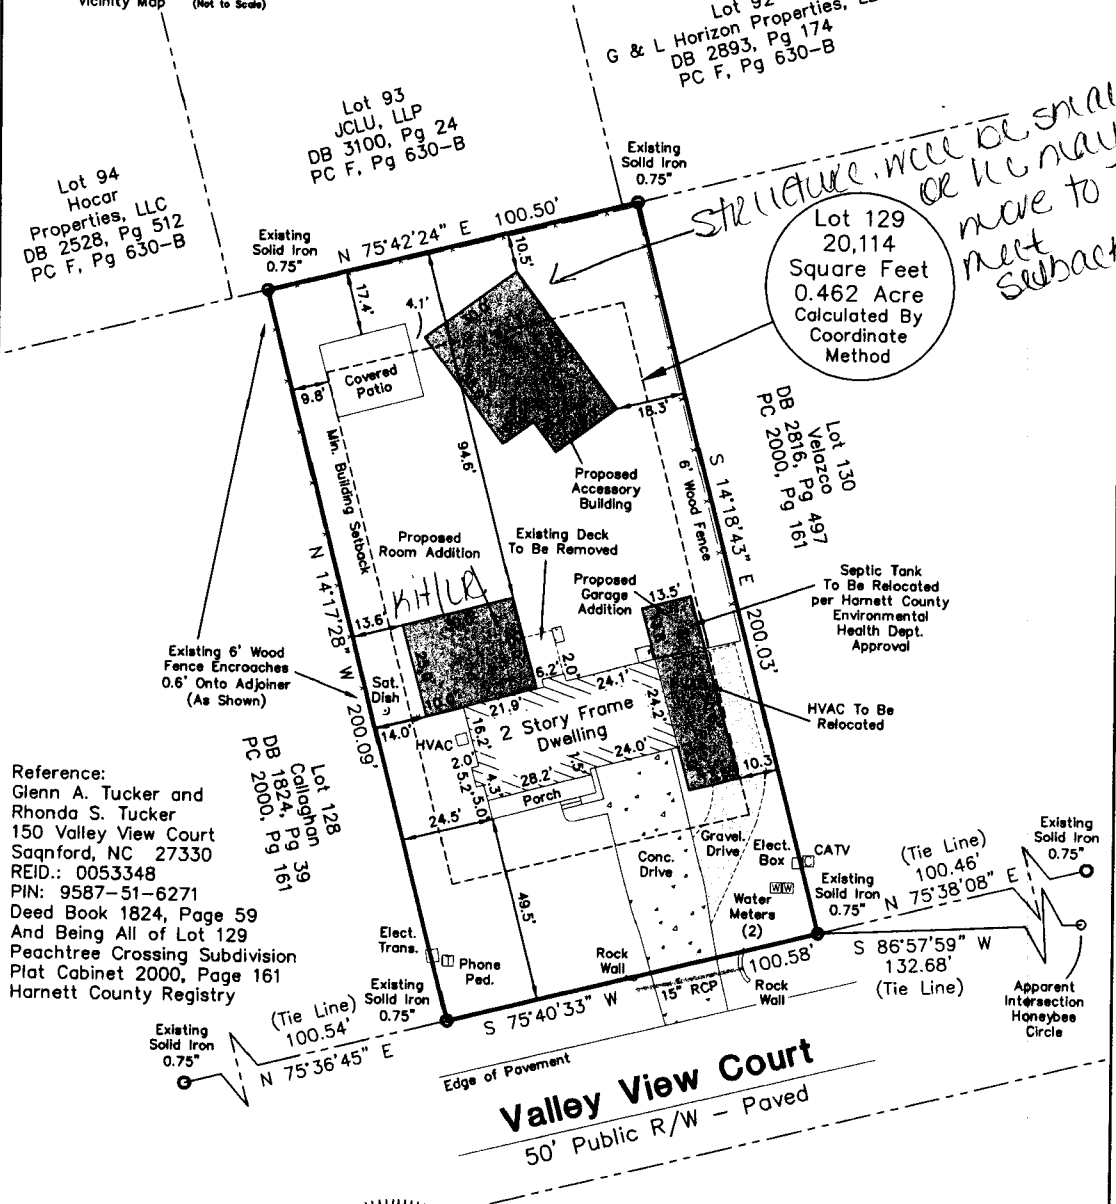 Vicinity Map (Not to Scale)
Lot 92
G & L Horizon Properties,
DB 2893, Pg 174
PC F, Pg 630-B
Lot 93
JCLU, LLP
DB 3100, Pg 24
PC F, Pg 630-B
Lot 94
Hocar
Properties, LLC
DB 2528, Pg 512
PC F, Pg 630-B
Existing
Solid Iron
0.75"
Existing
Solid Iron
0.75"
N 75°42'24" E 100.50'
structure will be
or
move to
meet
Lot 129
20,114
Square Feet
0.462 Acre
Calculated By
Coordinate
Method
10.5'
17.4'
4.1'
Covered
Patio
9.8'
18.3'
94.6'
Min. Building Setback
Proposed
Accessory
Building
6' Wood Fence
S 14°18'43" E 200.03'
Lot 130
Velazco
DB 2816, Pg 497
PC 2000, Pg 161
N 14°17'28" W 200.09'
Proposed
Room Addition
Kit/LR
Existing Deck
To Be Removed
Proposed
Garage
Addition
13.5'
Septic Tank
To Be Relocated
per Harnett County
Environmental
Health Dept.
Approval
13.6'
Existing 6' Wood
Fence Encroaches
0.6' Onto Adjoiner
(As Shown)
Sat.
Dish
14.0'
6.2'
2.0'
24.1'
21.9'
HVAC
16.2'
2 Story Frame
Dwelling
24.2'
HVAC To Be
Relocated
2.0'
5.2'
4.3'
5.0'
28.2'
1.5'
24.0'
10.3
Porch
24.5'
Lot 128
Callaghan
DB 1824, Pg 39
PC 2000, Pg 161
Reference:
Glenn A. Tucker and
Rhonda S. Tucker
150 Valley View Court
Saqnford, NC 27330
REID.: 0053348
PIN: 9587-51-6271
Deed Book 1824, Page 59
And Being All of Lot 129
Peachtree Crossing Subdivision
Plat Cabinet 2000, Page 161
Harnett County Registry
49.5'
Conc.
Drive
Gravel
Drive
Elect.
Box
CATV
W W
Water
Meters
(2)
Existing
Solid Iron
0.75"
(Tie Line)
100.46'
N 75°38'08" E
Existing
Solid Iron
0.75"
S 86°57'59" W
132.68'
(Tie Line)
Apparent
Intersection
Honeybee
Circle
Elect.
Trans.
Phone
Ped.
Rock
Wall
15" RCP
100.58'
Rock
Wall
Existing
Solid Iron
0.75"
S 75°40'33" W
(Tie Line)
100.54'
N 75°36'45" E
Existing
Solid Iron
0.75"
Edge of Pavement
Valley View Court
50' Public R/W - Paved